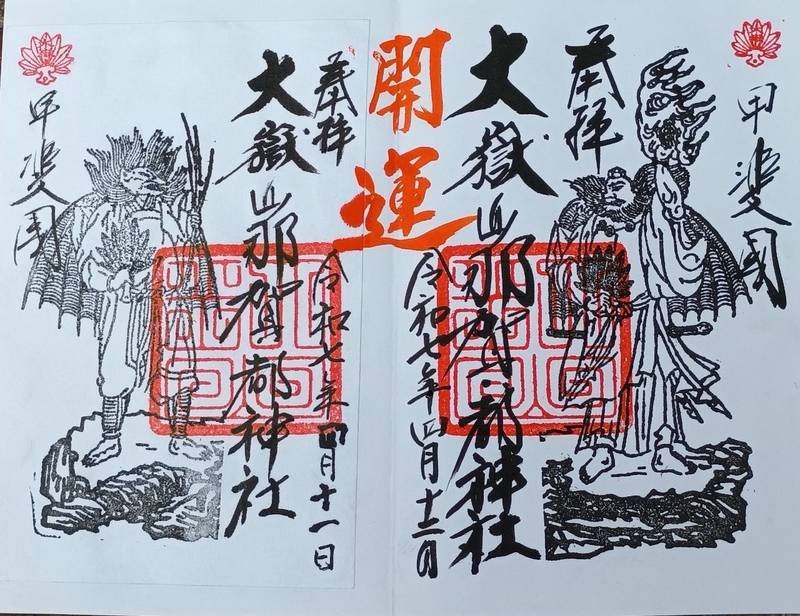 甲斐國
奉拝
大嶽山那賀都神社
令和七年四月十二日
開運
奉拝
令和七年四月十一日
大嶽山那賀都神社
甲斐國